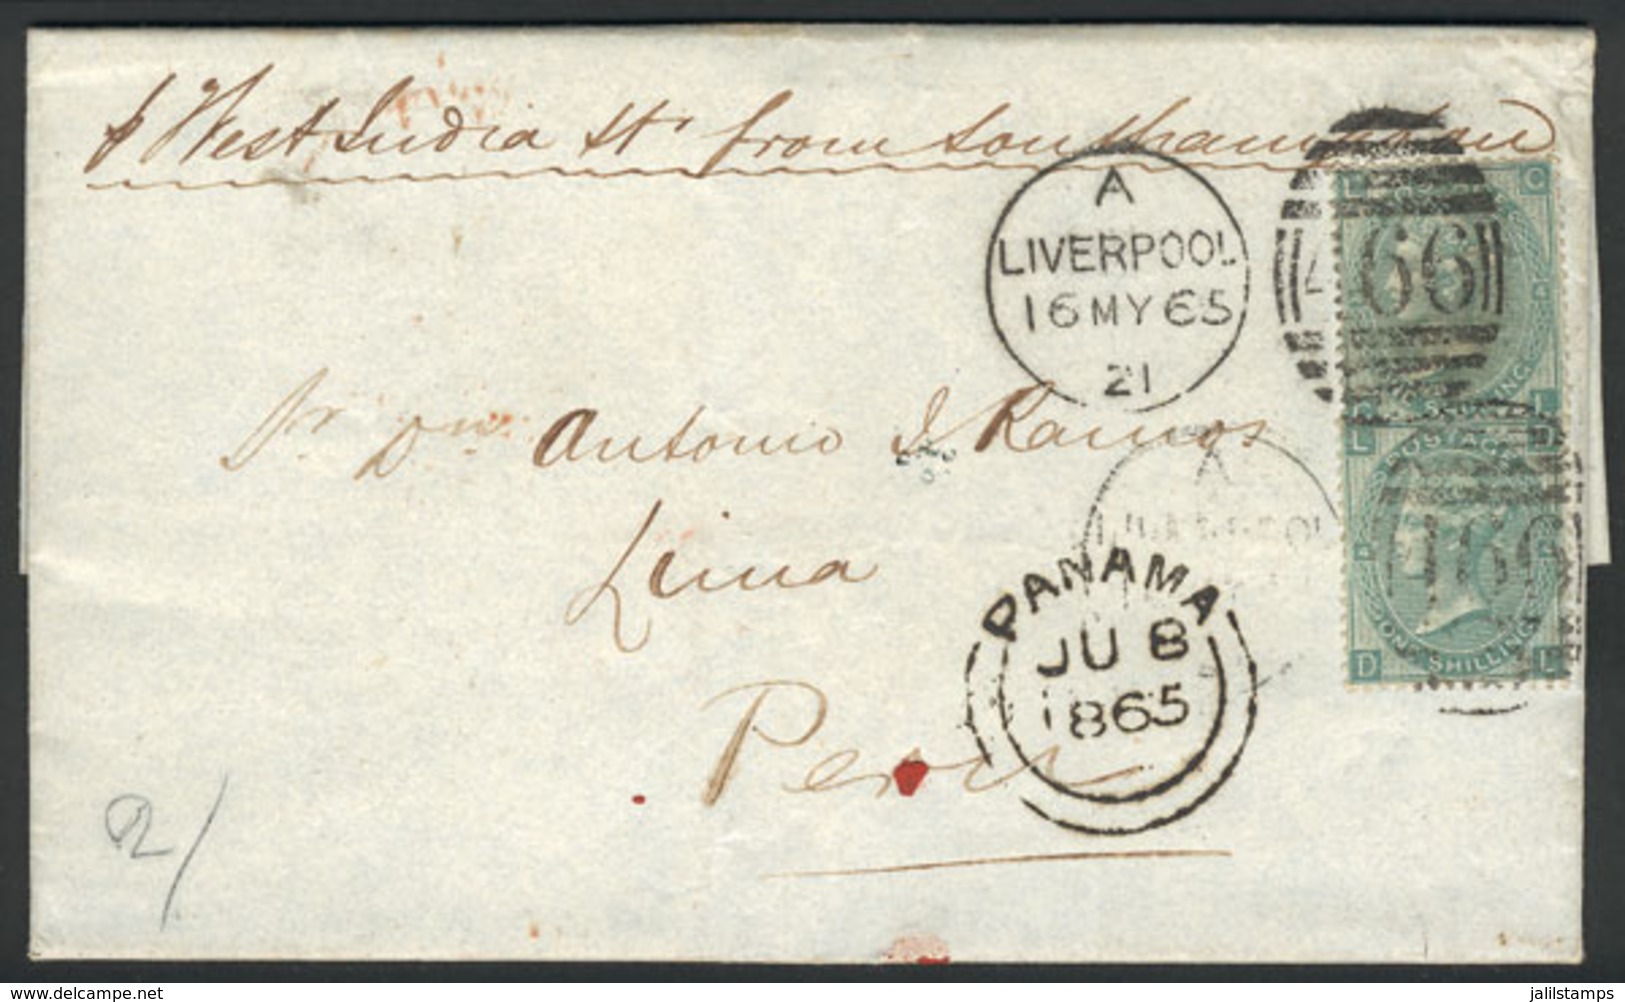 p West India Str from Southampton
A
LIVERPOOL
16 MY 65
21
466
L C
SHILLING
C L
Sr Dn Antonio J Ramos
Lima
Peru
A
LIVERPOOL
PANAMA
JU 8
1865
L D
POSTAGE
466
D
SHILLING
D L
2/
delcampe.net
jalilstamps